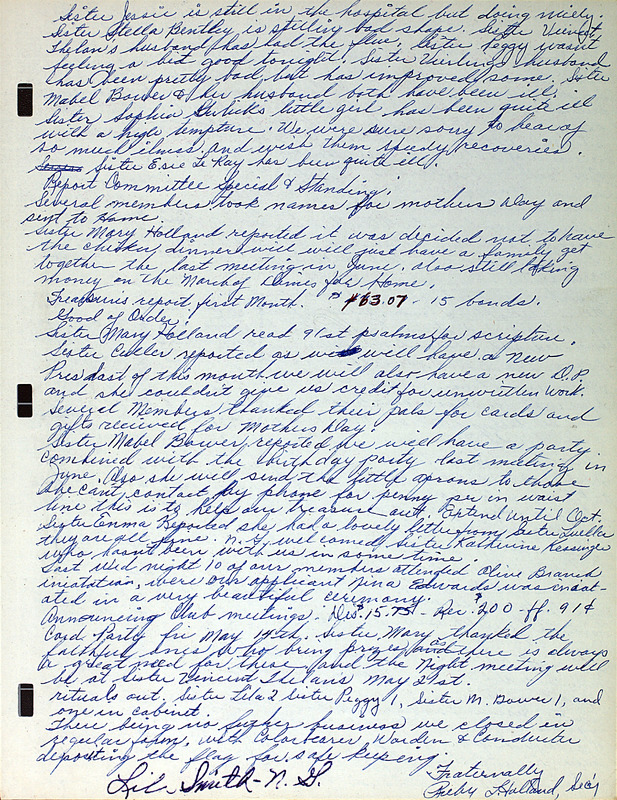 Sister Jessie is still in the hospital but doing nicely.
Sister Stella Bentley is still in bad shape. Sister Vincent
Thelan's husband has had the flu, Sister Peggy wasn't
feeling a bit good tonight. Sister husband
has been pretty bad but has improved some. Sister
Mabel Bower & her husband both have been ill.
Sister Sophia little girl has been quite ill
with a high tempture. We were sure sorry to hear of
so much illness and wish them speedy recoveries.
Sister Esie Le Ray has been quite ill.
Report Committee Special & Standing.
Several members took names for mothers Day and
sent to Home.
Sister Mary Holland reported it was decided not to have
the chicken dinner will just have a family get
together the last meeting in June. also still taking
money on the March of Dimes for Home.
Treasuries report first Month. $463.07 - 15 bonds.
Good of Order,
Sister Mary Holland read 91st psalms for scripture.
Sister Culler reported as will have a New
Pres last of this month we will also have a new D.P.
and she couldn't give us credit for unwritten work.
Several Members thanked their pals for cards and
gifts received for Mothers Day.
Sister Mabel Bower reported we will have a party
combined with the birthday party last meeting in
June. Also she will send the little aprons to those
she cant contact by phone for penny per in waist
line this is to help our treasure out. Extend until Oct.
Sister Emma Reported she had a lovely letter from Sister Luella
they are all fine. N.G. welcomed Sister Katherine
who hasn't been with us in some time
Last Wed night 10 of our members attended Olive Branch
iniatation, were our applicant Nina Edwards was
ated in a very beautiful ceremony.
Announcing Club meetings - Dis. 15. - Rec. 200 - ff. 91¢
Card Party Fri May 14th. Sister Mary thanked the
faithful ones who bring prizes as there is always
a great need for these and the Night meeting will
be at Sister Vincent Thelans May 21st.
rituals out. Sister Lila 2 Sister Peggy 1, Sister M. Bower 1, and
one in cabinet.
There being no further business we closed in
regular form, with Colorbearer, Warden & Conductor
depositing the flag for safe keeping.
Fraternally
Lil Smith - N.G.
Ruby Holland, Sec'y